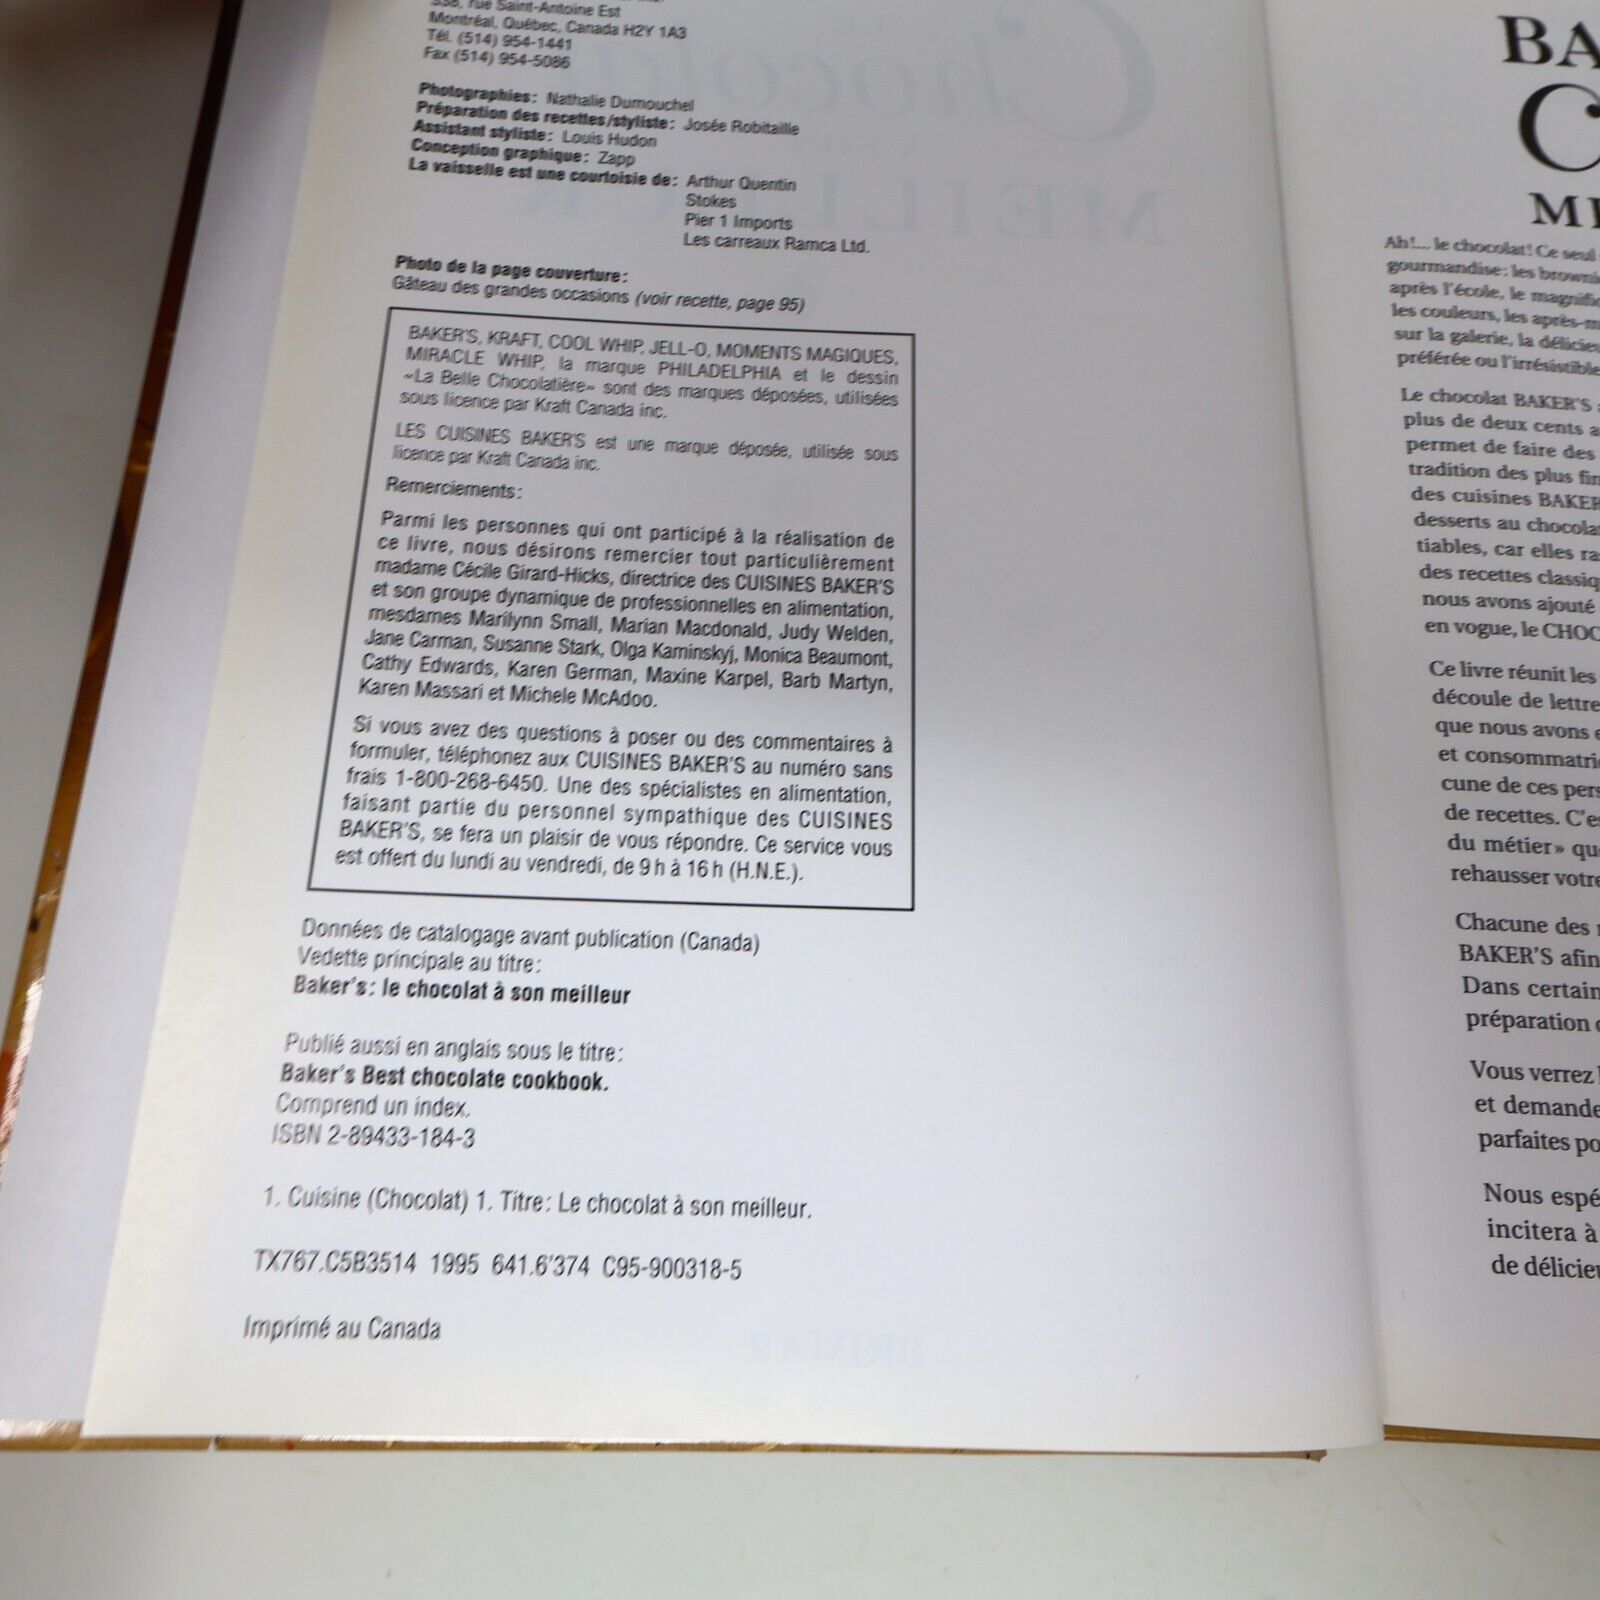 338, rue Saint-Antoine Est
Montréal, Québec, Canada H2Y 1A3
Tél. (514) 954-1441
Fax (514) 954-5086
Photographies: Nathalie Dumouchel
Préparation des recettes/styliste: Josée Robitaille
Assistant styliste: Louis Hudon
Conception graphique: Zapp
La vaisselle est une courtoisie de: Arthur Quentin
Stokes
Pier 1 Imports
Les carreaux Ramca Ltd.
Photo de la page couverture:
Gâteau des grandes occasions (voir recette, page 95)
BAKER'S, KRAFT, COOL WHIP, JELL-O, MOMENTS MAGIQUES,
MIRACLE WHIP, la marque PHILADELPHIA et le dessin
«La Belle Chocolatière» sont des marques déposées, utilisées
sous licence par Kraft Canada inc.
LES CUISINES BAKER'S est une marque déposée, utilisée sous
licence par Kraft Canada inc.
Remerciements:
Parmi les personnes qui ont participé à la réalisation de
ce livre, nous désirons remercier tout particulièrement
madame Cécile Girard-Hicks, directrice des CUISINES BAKER'S
et son groupe dynamique de professionnelles en alimentation,
mesdames Marilynn Small, Marian Macdonald, Judy Welden,
Jane Carman, Susanne Stark, Olga Kaminskyj, Monica Beaumont,
Cathy Edwards, Karen German, Maxine Karpel, Barb Martyn,
Karen Massari et Michele McAdoo.
Si vous avez des questions à poser ou des commentaires à
formuler, téléphonez aux CUISINES BAKER'S au numéro sans
frais 1-800-268-6450. Une des spécialistes en alimentation,
faisant partie du personnel sympathique des CUISINES
BAKER'S, se fera un plaisir de vous répondre. Ce service vous
est offert du lundi au vendredi, de 9 h à 16 h (H.N.E.).
Données de catalogage avant publication (Canada)
Vedette principale au titre:
Baker's: le chocolat à son meilleur
Publié aussi en anglais sous le titre:
Baker's Best chocolate cookbook.
Comprend un index.
ISBN 2-89433-184-3
1. Cuisine (Chocolat) 1. Titre: Le chocolat à son meilleur.
TX767.C5B3514 1995 641.6'374 C95-900318-5
Imprimé au Canada
BA
C
ME
Ah!... le chocolat! Ce seul
gourmandise: les browni
après l'école, le magnifi
les couleurs, les après-m
sur la galerie, la délicieu
préférée ou l'irrésistible
Le chocolat BAKER'S a
plus de deux cents a
permet de faire des
tradition des plus fin
des cuisines BAKER'
desserts au chocolat
tiables, car elles ra
des recettes classiq
nous avons ajouté
en vogue, le CHOC
Ce livre réunit les
découle de lettre
que nous avons e
et consommatri
cune de ces pers
de recettes. C'es
du métier» que
rehausser votre
Chacune des r
BAKER'S afin
Dans certain
préparation d
Vous verrez l
et demande
parfaites po
Nous espé
incitera à
de délicieu